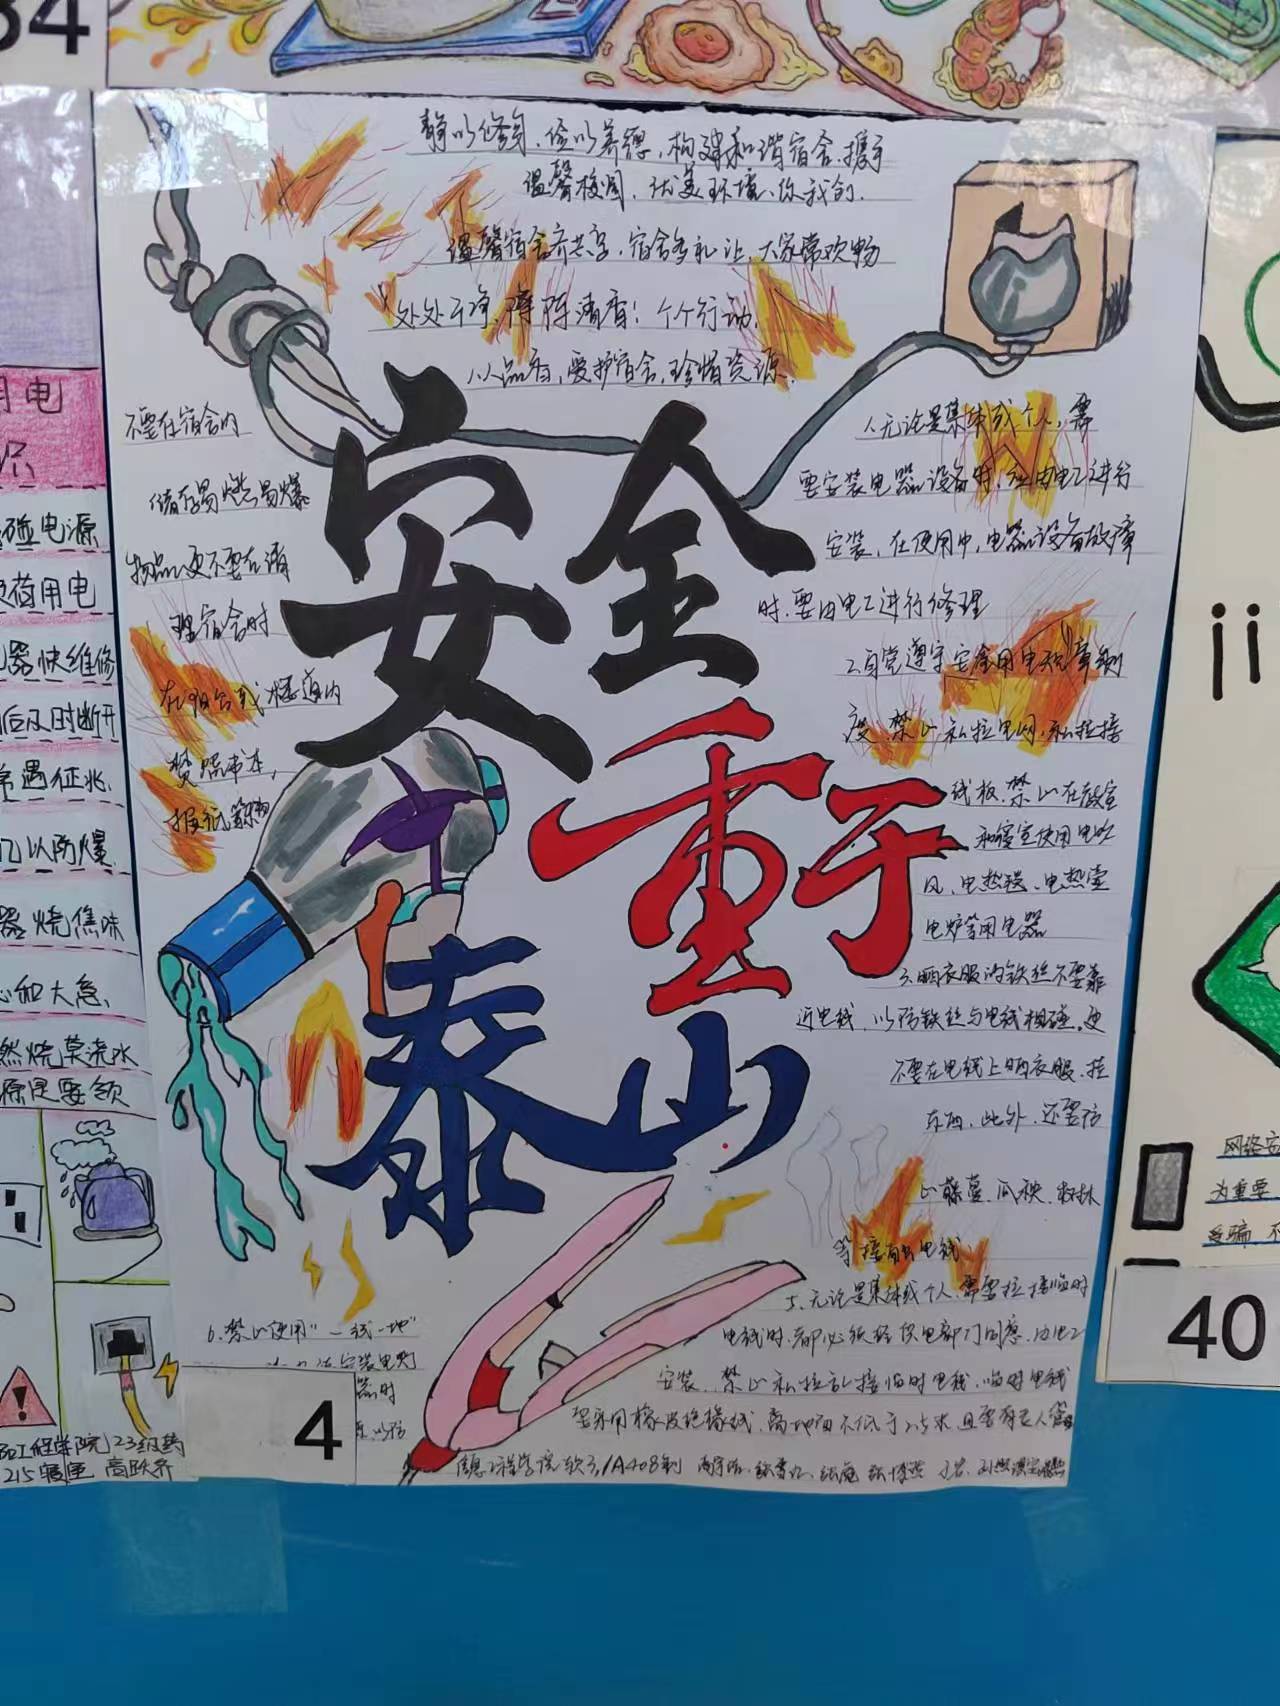 34
静以修身,俭以养德,构建和谐宿舍,携手
温馨校园,优美环境,你我的.
温馨宿舍齐共享,宿舍多礼让,大家常欢畅
处处干净,阵阵清香!个个行动,
人人品香,爱护宿舍,珍惜资源.
不要在宿舍内
储存易燃易爆
物品,更不要在清
理宿舍时
在阳台或楼道内
焚烧书本,
安全
重于
泰山
1.无论是集体或个人,需
要安装电器设备时,应由电工进行
安装,在使用中,电器设备故障
时,要由电工进行修理
2.自觉遵守安全用电规章制
度,禁止私拉电网,私拉接
线板,禁止在教室
和寝室使用电吹
风、电热毯、电热壶
电炉等用电器
3.晒衣服的铁丝不要靠
近电线,以防铁丝与电线相碰,更
不要在电线上晒衣服、挂
东西,此外,还要防
止藤蔓、瓜秧、树木
等接触电线
5.无论是集体或个人,需要拉接临时
电线时,都必须经供电部门同意,由电工
安装,禁止私拉乱接临时电线,临时电线
要采用橡皮绝缘线,离地面不低于2.5米,且要有专人管
6.禁止使用“一线一地”
安装电灯
器时
以防
4
信息工程学院
用电
碰电源
荷用电
器快维修
后及时断开
遇征兆
以防爆
器烧焦味
和大意
燃烧莫浇水
源是要领
工程学院
215寝室
40
网络安
为重要
受骗,不